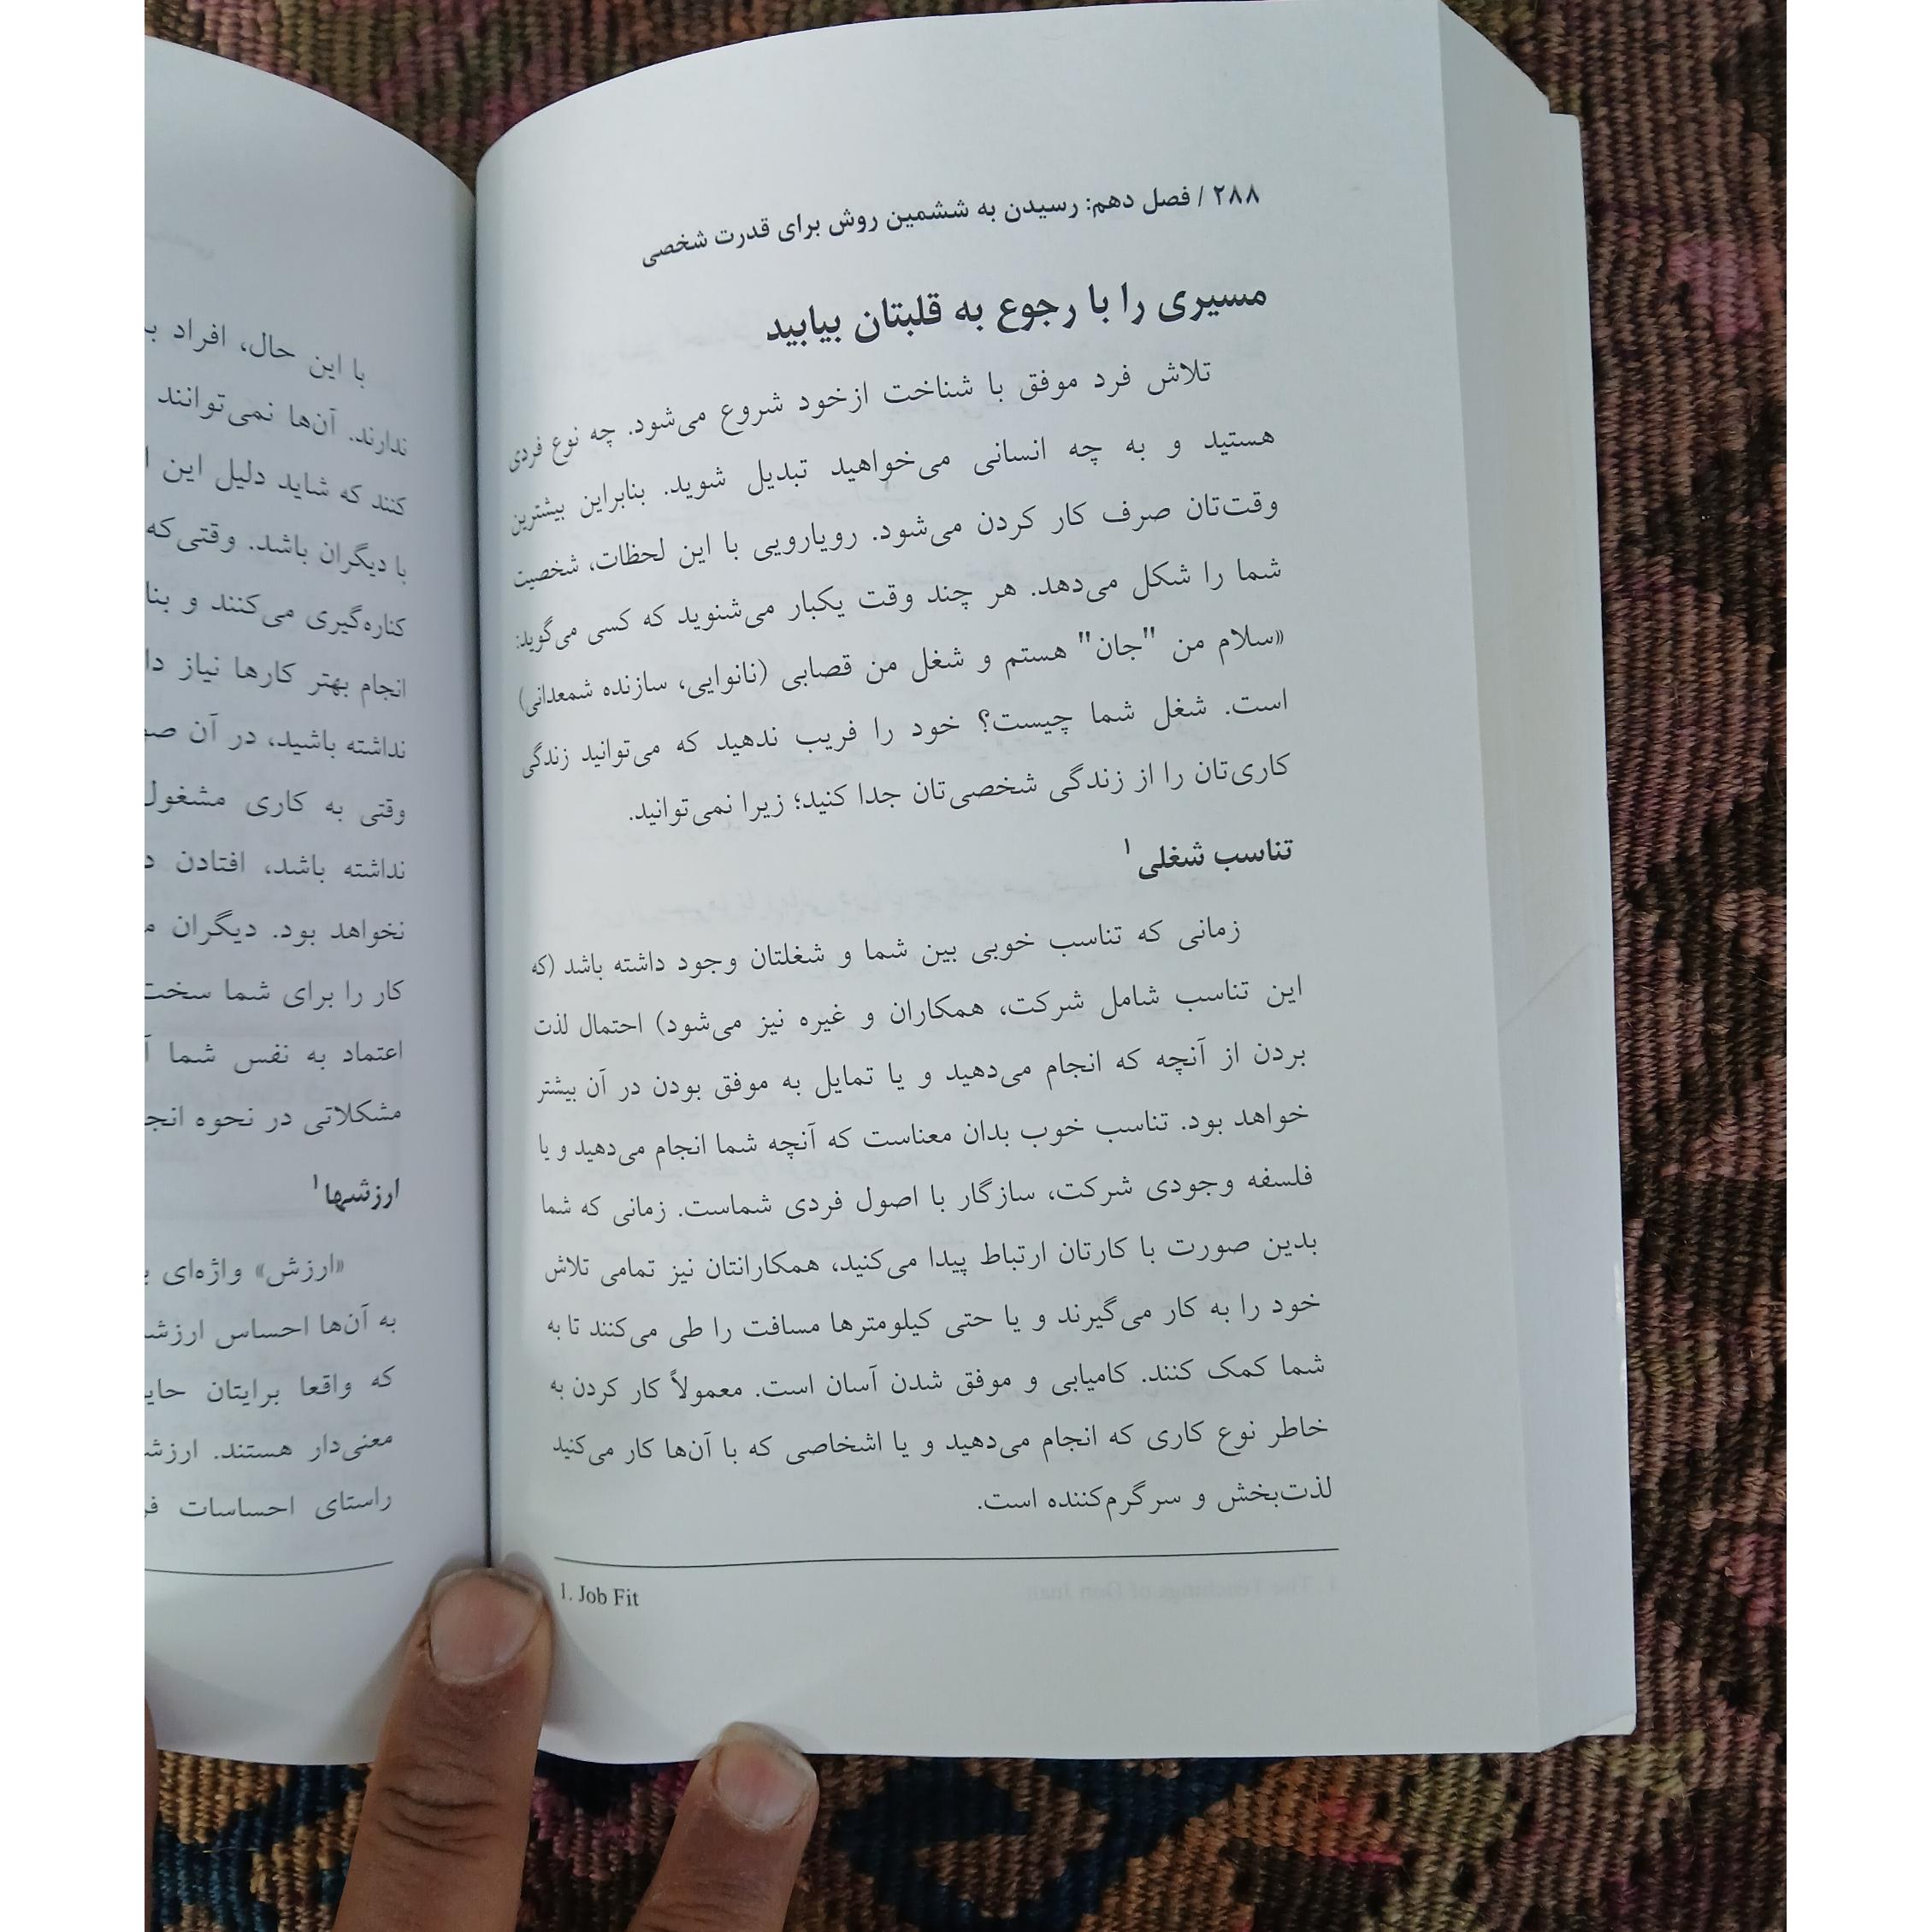 ۲۸۸ / فصل دهم: رسیدن به ششمین روش برای قدرت شخصی
مسیری را با رجوع به قلبتان بیابید
تلاش فرد موفق با شناخت ازخود شروع می‌شود. چه نوع فردی
هستید و به چه انسانی می‌خواهید تبدیل شوید. بنابراین بیشترین
وقت‌تان صرف کار کردن می‌شود. رویارویی با این لحظات، شخصیت
شما را شکل می‌دهد. هر چند وقت یکبار می‌شنوید که کسی می‌گوید:
«سلام من "جان" هستم و شغل من قصابی (نانوایی، سازنده شمعدانی)
است. شغل شما چیست؟ خود را فریب ندهید که می‌توانید زندگی
کاری‌تان را از زندگی شخصی‌تان جدا کنید؛ زیرا نمی‌توانید.
تناسب شغلی۱
زمانی که تناسب خوبی بین شما و شغلتان وجود داشته باشد (که
این تناسب شامل شرکت، همکاران و غیره نیز می‌شود) احتمال لذت
بردن از آنچه که انجام می‌دهید و یا تمایل به موفق بودن در آن بیشتر
خواهد بود. تناسب خوب بدان معناست که آنچه شما انجام می‌دهید و یا
فلسفه وجودی شرکت، سازگار با اصول فردی شماست. زمانی که شما
بدین صورت با کارتان ارتباط پیدا می‌کنید، همکارانتان نیز تمامی تلاش
خود را به کار می‌گیرند و یا حتی کیلومترها مسافت را طی می‌کنند تا به
شما کمک کنند. کامیابی و موفق شدن آسان است. معمولاً کار کردن به
خاطر نوع کاری که انجام می‌دهید و یا اشخاصی که با آن‌ها کار می‌کنید
لذت‌بخش و سرگرم‌کننده است.
1. Job Fit
با این حال، افراد
ندارند. آن‌ها نمی‌توانند
کنند که شاید دلیل این
با دیگران باشد. وقتی‌که
کناره‌گیری می‌کنند و
انجام بهتر کارها نیاز
نداشته باشید، در آن
وقتی به کاری مشغول
نداشته باشد، افتادن
نخواهد بود. دیگران
کار را برای شما سخت
اعتماد به نفس شما
مشکلاتی در نحوه
ارزشها۱
«ارزش» واژه‌ای
به آن‌ها احساس
که واقعا برایتان
معنی‌دار هستند.
راستای احساسات